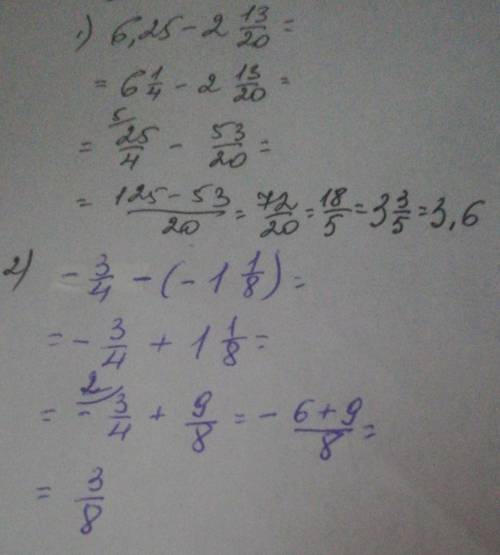 1) 6,25 - 2 13/20 =
= 6 1/4 - 2 13/20 =
= 5/ 25/4 - 53/20 =
= 125 - 53/20 = 72/20 = 18/5 = 3 3/5 = 3,6
2) - 3/4 - (- 1 1/8) =
= - 3/4 + 1 1/8 =
= 2) - 3/4 + 9/8 = - 6 + 9/8 =
= 3/8